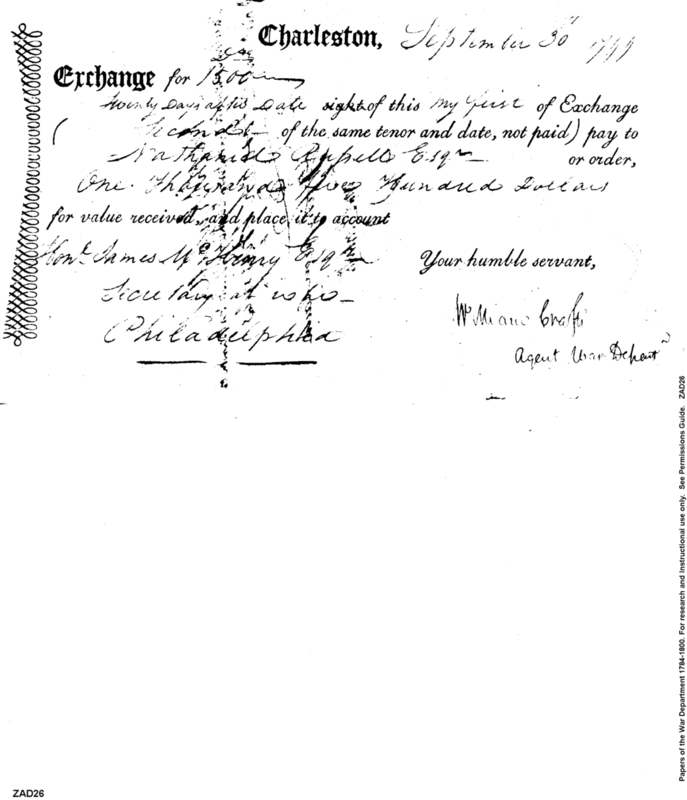 Charleston, September 30th 1799
Exchange for 1500
Twenty Days after Date sight of this my first of Exchange
( Second of the same tenor and date, not paid) pay to
Nathaniel Russell Esqr or order,
One Thousand Five Hundred Dollars
for value received, and place it to account
Honl. James McHenry Esqr Your humble servant,
Secretary at War
Philadelphia
William Crafts
Agent War Depart
Papers of the War Department 1784-1800. For research and instructional use only. See Permissions Guide. ZAD26
ZAD26